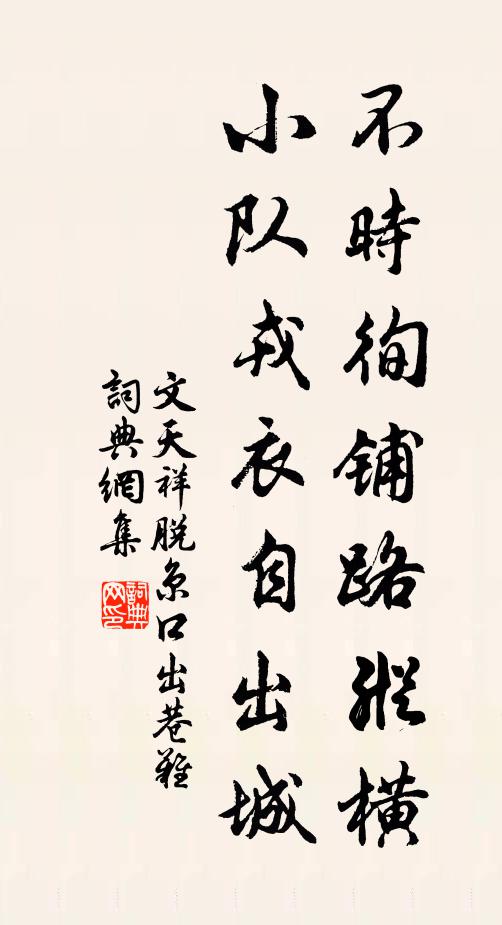 不時徇铺路縱橫
小队戎衣自出城
文天祥脱京口出巷難
詞典網集
詞典网印